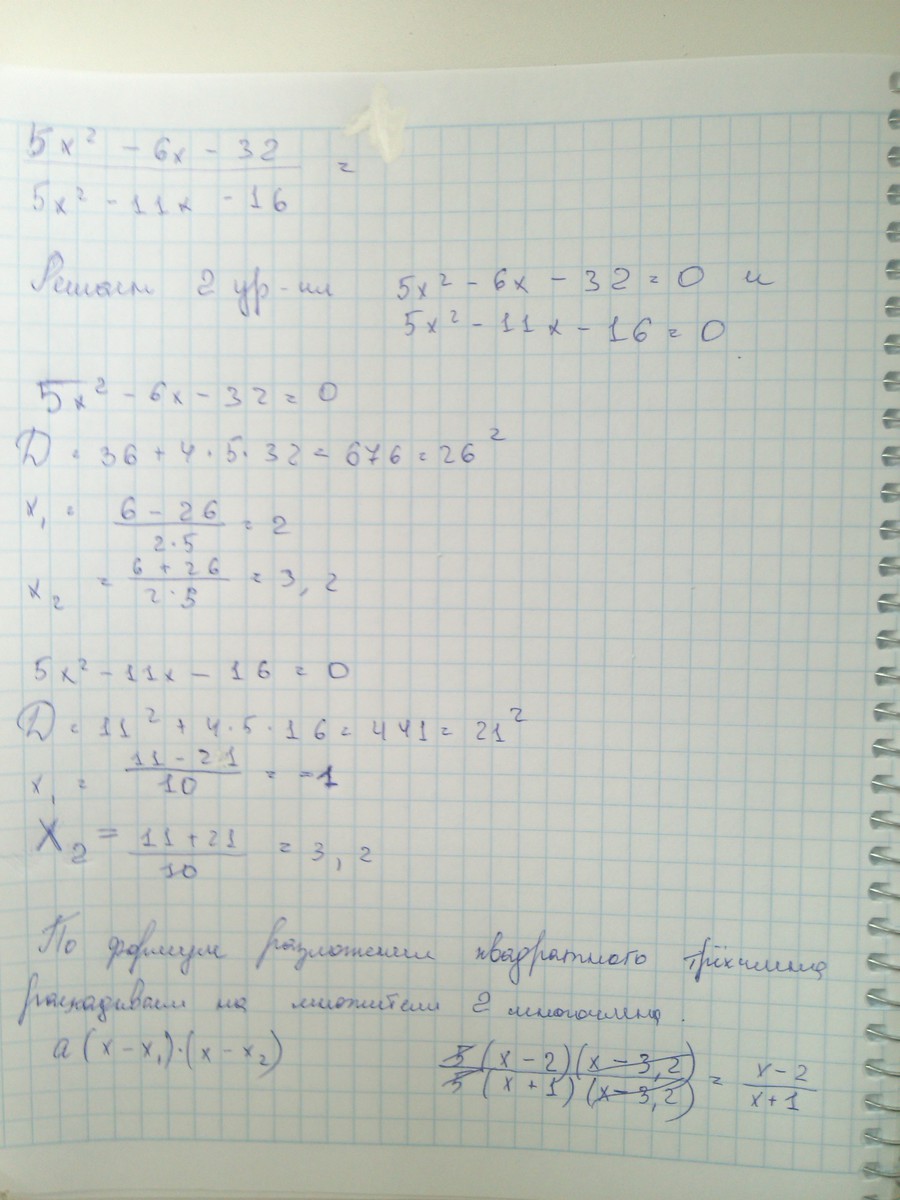 5x² - 6x - 32
5x² - 11x - 16 =
Решаем 2 ур-ия 5x² - 6x - 32 = 0 и
5x² - 11x - 16 = 0
5x² - 6x - 32 = 0
D = 36 + 4 · 5 · 32 = 676 = 26²
x₁ = (6 - 26)/(2·5) = 2
x₂ = (6 + 26)/(2·5) = 3,2
5x² - 11x - 16 = 0
D = 11² + 4·5·16 = 441 = 21²
x₁ = (11 - 21)/10 = -1
X₂ = (11 + 21)/10 = 3,2
По формуле разложения квадратного трёхчлена
раскладываем на множители 2 многочлена.
a(x - x₁)·(x - x₂)
5(x - 2)(x - 3,2)/5(x + 1)(x - 3,2) = (x - 2)/(x + 1)